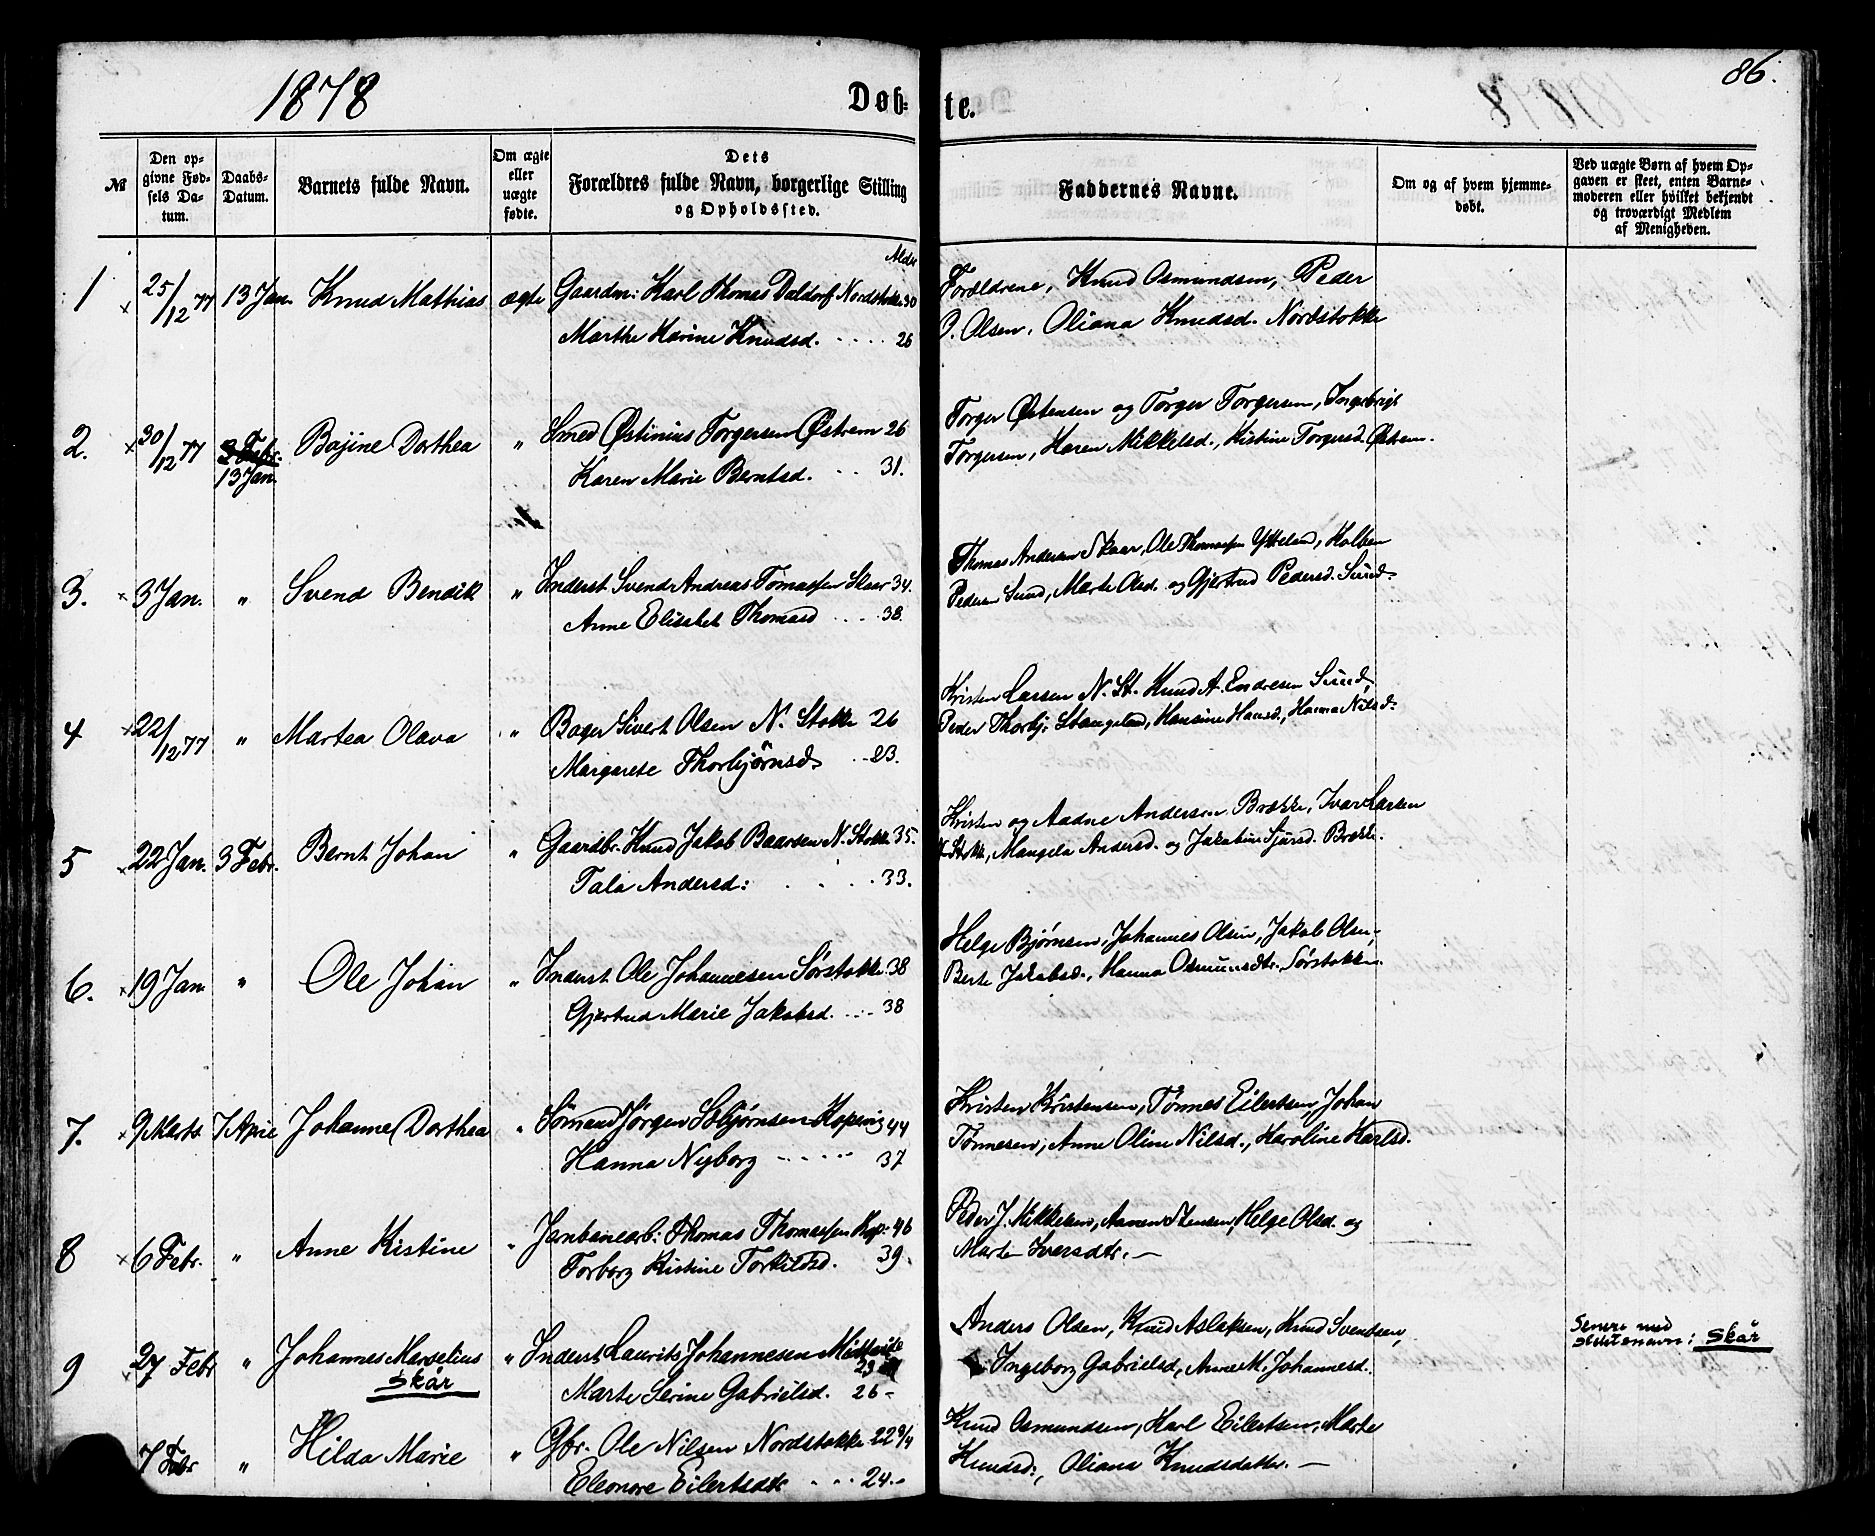 1878
Døb-
te.
86.
№
Den op-
givne Fød-
sels Da-
tum.
Daabs-
Datum.
Barnets fulde Navn.
Om ægte
eller
uægte
fødte.
Dets
Forældres fulde Navn, borgerlige Stilling
og Opholdssted.
Faddernes Navne.
Om og af hvem hjemme-
døbt.
Ved uægte Børn af hvem Op-
gaven er skeet, enten Barne-
moderen eller hvilket bekjendt
og troværdigt Medlem
af Menigheden.
Alder
1 25/12 77 13 Jan. Knud Mathias ægte Gaardm: Karl Thomas Daldorf Nordstokke 30
Marthe Karine Knudsd. 26
Forældrene, Knud Osmundsen, Peder
O. Olsen, Oliana Knudsd. Nordstokke
2. 30/12 77 3 Febr. 13 Jan. Dorthea " Smed Østinius Torgersen Østrem 26
Karen Marie Berntsd. 31.
Torger Østensen og Torger Torgersen, Ingebrigt
Torgersen, Karen Mikkelsd., Kistine Torgersd. Østrem.
3. 3 Jan. " Svend Bendik " Inderst Svend Andreas Tomassen Skaar 34.
Anne Elisabet Thomasd 38.
Thomas Andersen Skaar, Ole Thomassen Ytteland, Kolben
Pedersen Sund, Marte Olsd. og Gjertrud Pedersd. Sund.
4 22/12 77 " Martea Olava " Bager Sivert Olsen N. Stokke 26
Margarete Thorbjørnsd 23.
Kristen Larsen N. St. Knud A. Endresen Sund,
Peder Thorbj. Stangeland, Hansine Hansd., Hanna Nilsd.
5 22 Jan. 3 Febr. Bernt Johan " Gaardbr. Knud Jakob Baarsen N. Stokke 35.
Tala Andersd: 33.
Kristen og Aadne Andersen Brække, Ivar Larsen
N. Stokk, Mangela Andersd. og Jakobine Sjursd. Brække.
6. 19 Jan. " Ole Johan " Inderst Ole Johannesen Sørstokke 38
Gjertrud Marie Jakobsd. 38
Helge Bjørnsen, Johannes Olsen, Jakob Olsen,
Berte Jakobsd., Hanna Osmundsdtr. Sørstokke.
7. 9 Marts 7 April Johanne Dorthea " Sømand Jørgen Asbjørnsen Kopervig 44
Hanna Nyborg 37
Kristen Kristensen, Tønnes Eilertsen, Johan
Tønnesen, Anne Oline Nilsd., Karoline Karlsd.
8 6 Febr. " Anne Kistine " Jernbanearb: Thomas Thomassen Kop: 46
Torborg Kistine Torkildsd. 39.
Peder J. Mikkelsen, Stensen, Helge Olsd. og
Marte Iversdtr. —
9 27 Febr " Johannes Marselius " Inderst Laurits Johannesen 23
Skår
Marte Serine Gabrielsd. 26 -
Anders Olsen, Knud Aslaksen, Knud Svendsen,
Ingeborg Gabrielsd, Anne M. Johannesd.
Senere med
slektsnavn: Skår
7 Febr " Hilda Marie " Gbr. Ole Nilsen Nordstokke 22 9/4
Eleonore Eilertsdtr 24.-
Knud Osmundsen, Karl Eilertsen, Marte
Knudsd:, Oliana Knudsdatter. —